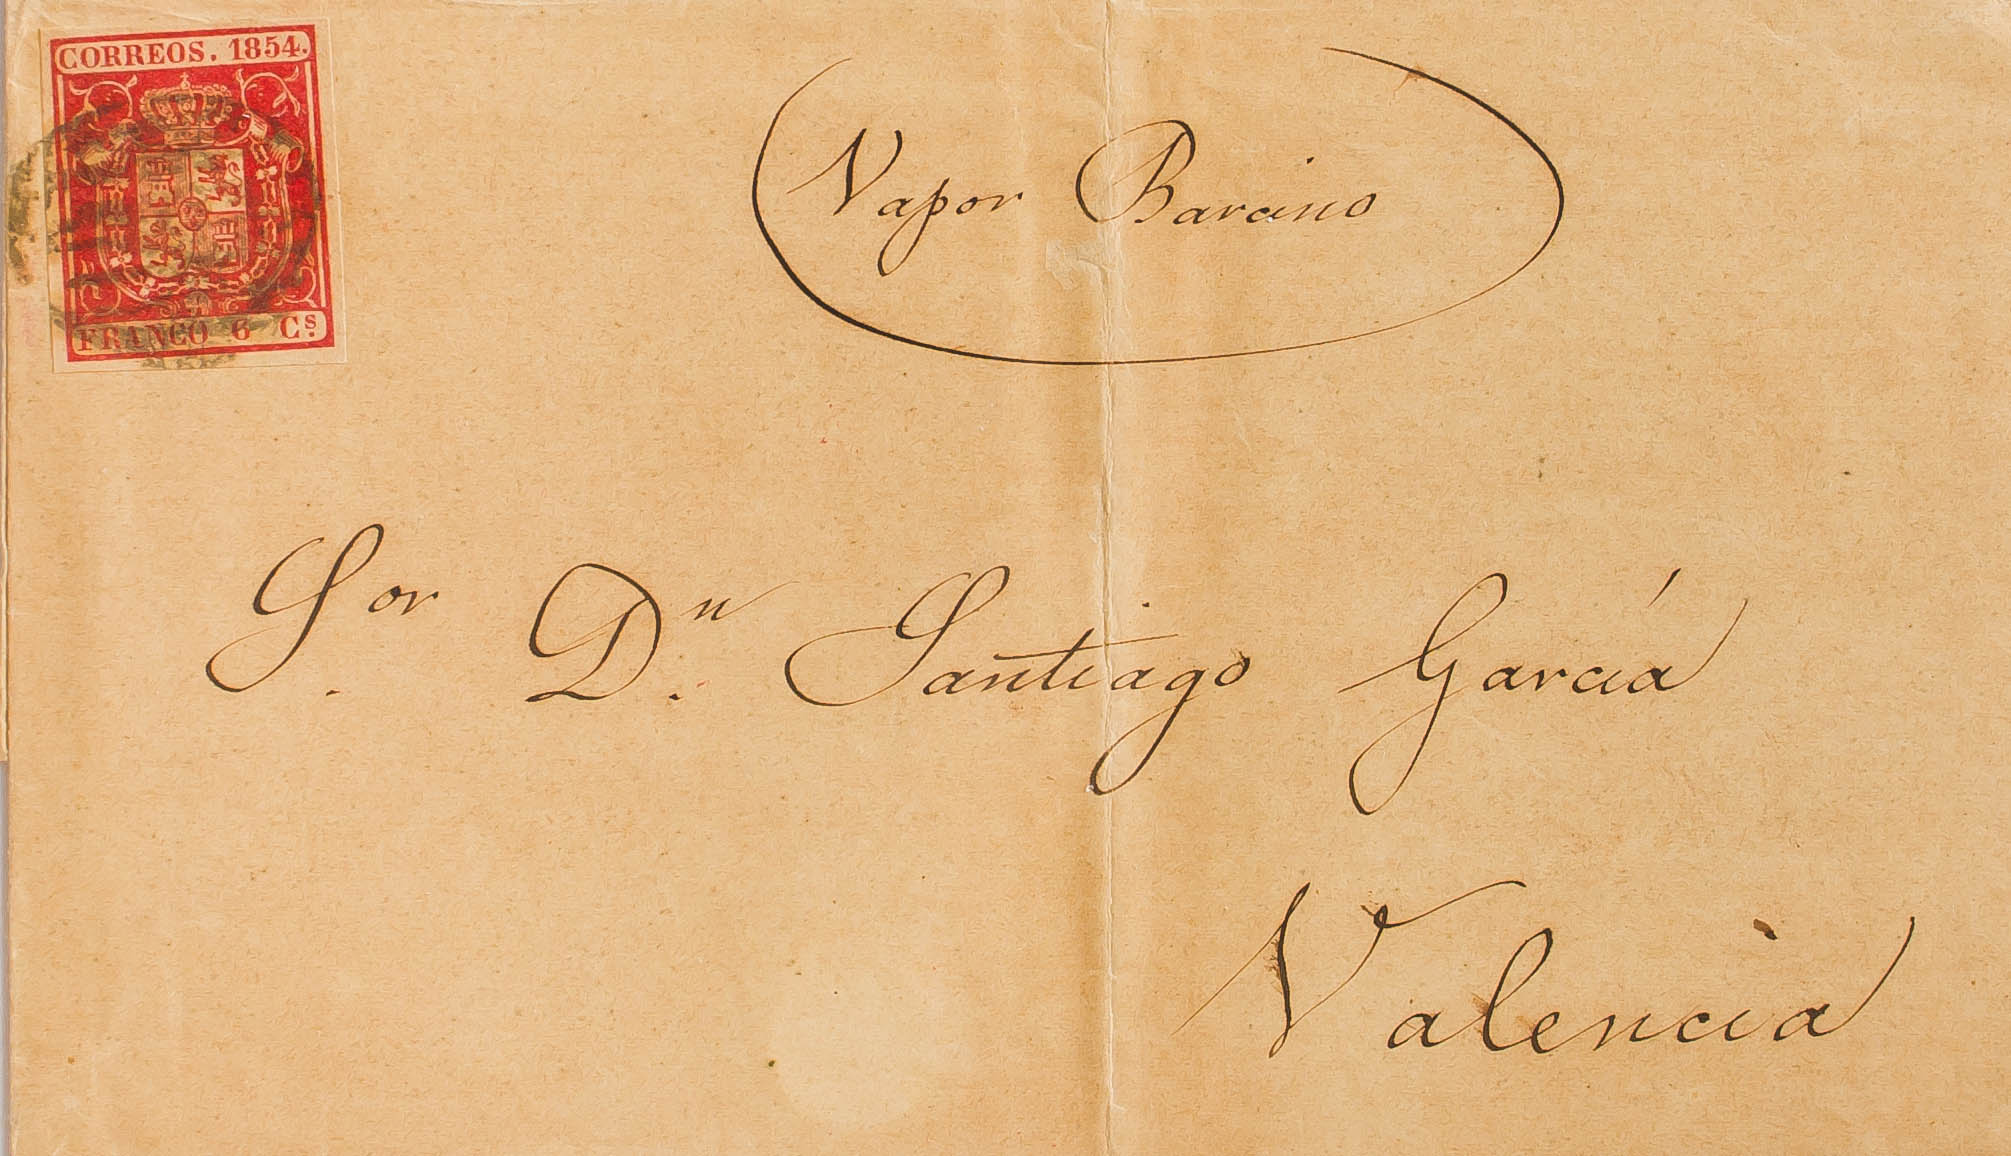 CORREOS. 1854.
FRANCO 6 Cs.
Vapor Barcino
Sor. Dn. Santiago García
Valencia